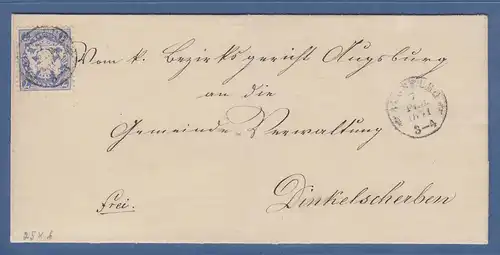 Vom k. Bezirksgericht Augsburg
an die
Gemeinde-Verwaltung
Dinkelscherben
frei.
AUGSBURG
3-4